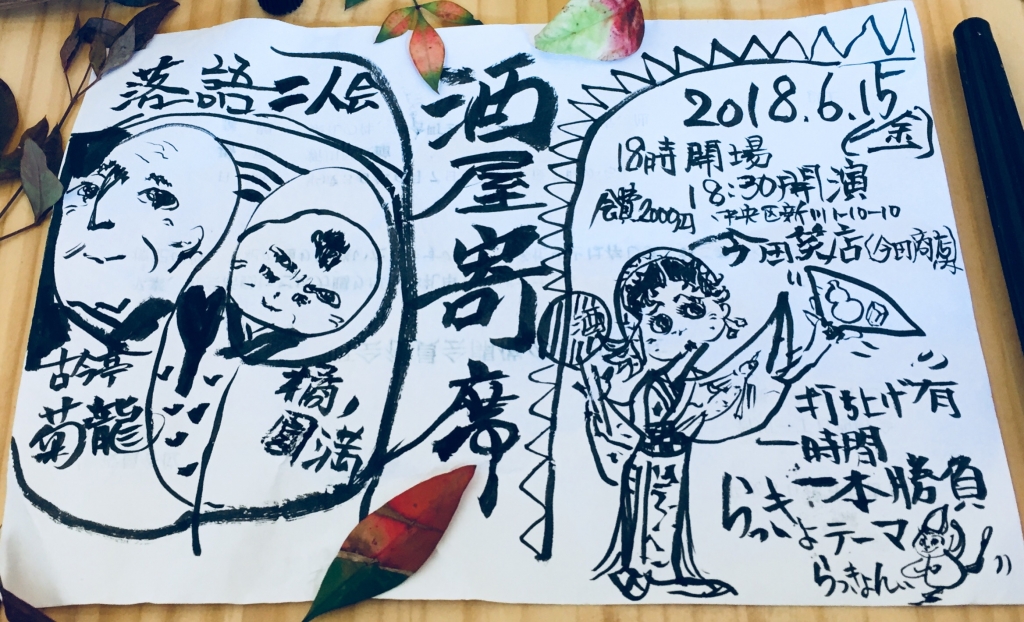 落語二人会
古今亭
菊龍
橘ノ
圓満
酒屋寄席
2018.6.15
(金)
18時開場
18:30開演
会費2000円
中央区新川1-10-10
今田
酒
打ち上げ有
一時間
一本勝負
らっきょ
テーマ
らっきょん